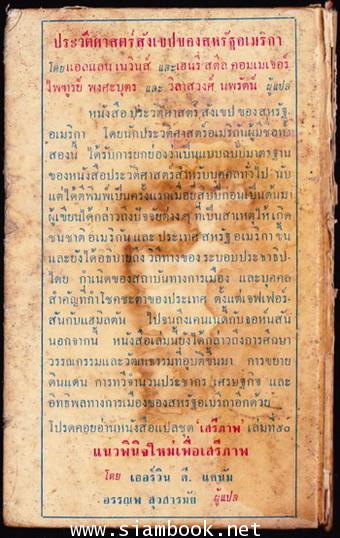 ประวัติศาสตร์สังเขปของสหรัฐอเมริกา
โดยแอลแลน เนวินส์ และเฮนรี สตีล คอมเมเจอร์
ไพฑูรย์ พงศะบุตร และ วิลาสวงศ์ นพรัตน์ ผู้แปล
หนังสือ ประวัติศาสตร์ สังเขป ของ สหรัฐ
อเมริกา โดยนักประวัติศาสตร์อเมริกันผู้มีชื่อทั้ง
สองนี้ ได้รับการยกย่องว่าเป็นแบบฉบับมาตรฐาน
ของหนังสือประวัติศาสตร์สำหรับบุคคลทั่วไป นับ
แต่ได้ตีพิมพ์เป็นครั้งแรกเมื่อยี่สิบปีก่อนเป็นต้นมา
ผู้เขียนได้กล่าวถึงปัจจัยต่างๆ ที่เป็นสาเหตุให้เกิด
ชนชาติ อเมริกัน และ ประเทศ สหรัฐ อเมริกา ขึ้น
และยังได้อธิบายถึง วิถีทางของ ระบอบประชาธิป-
ไตย กำเนิดของสถาบันทางการเมือง และบุคคล
สำคัญที่กำโชคชะตาของประเทศ ตั้งแต่เจฟเฟอร์-
สันกับแฮมิลตัน ไปจนถึงเคนเนดีกับจอห์นสัน
นอกจากนี้ หนังสือเล่มนี้ยังได้กล่าวถึงการศึกษา
วรรณกรรมและวัฒนธรรมที่อุบัติขึ้นมา การขยาย
ดินแดน การทวีจำนวนประชากร เศรษฐกิจ และ
อิทธิพลทางการเมืองของสหรัฐอเมริกาอีกด้วย
โปรดคอยอ่านหนังสือแปลชุด 'เสรีภาพ' เล่มที่๕๐
แนวพินิจใหม่เพื่อเสรีภาพ
โดย เออร์วิน ดี. แคนัม
อรรณพ สุวสารมัย ผู้แปล
www.siambook.net